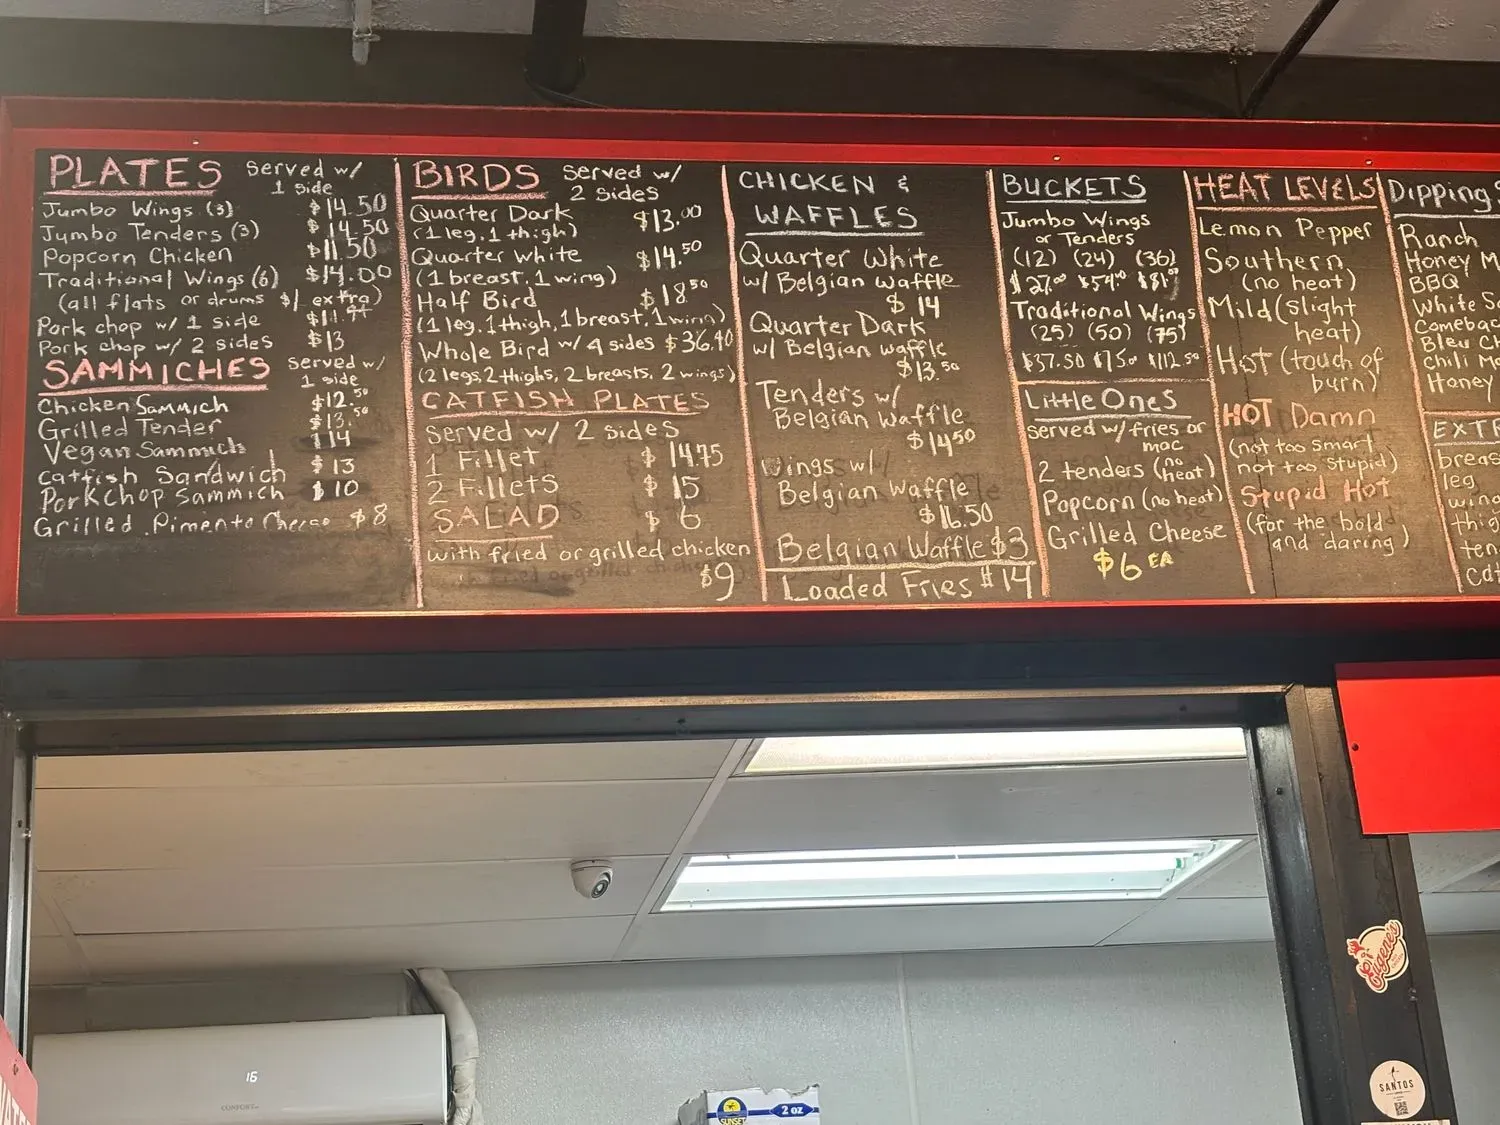 PLATES Served w/
1 side
Jumbo Wings (3) $14.50
Jumbo Tenders (3) $14.50
Popcorn Chicken $11.50
Traditional Wings (6) $14.00
(all flats or drums $1 extra)
Pork chop w/ 1 side $11.99
Pork chop w/ 2 sides $13
SAMMICHES Served w/
1 side
Chicken Sammich $12.50
Grilled Tender $13.50
Vegan Sammich $14
Catfish Sandwich $13
PorkChop Sammich $10
Grilled Pimento Cheese $8
BIRDS Served w/
2 sides
Quarter Dark $13.00
(1 leg, 1 thigh)
Quarter white $14.50
(1 breast, 1 wing)
Half Bird $18.50
(1 leg, 1 thigh, 1 breast, 1 wing)
Whole Bird w/ 4 sides $36.40
(2 legs, 2 thighs, 2 breasts, 2 wings)
CATFISH PLATES
Served w/ 2 sides
1 Fillet $14.75
2 Fillets $15
SALAD $6
with fried or grilled chicken
$9
CHICKEN &
WAFFLES
Quarter White
w/ Belgian Waffle
$14
Quarter Dark
w/ Belgian waffle
$13.50
Tenders w/
Belgian Waffle
$14.50
Wings w/
Belgian Waffle
$16.50
Belgian Waffle $3
Loaded Fries $14
BUCKETS
Jumbo Wings
or Tenders
(12) (24) (36)
$27.00 $54.00 $81.00
Traditional Wings
(25) (50) (75)
$37.50 $75.00 $112.50
Little Ones
served w/ fries or
mac
2 tenders (no heat)
Popcorn (no heat)
Grilled Cheese
$6 EA
HEAT LEVELS
Lemon Pepper
Southern
(no heat)
Mild (slight
heat)
Hot (touch of
burn)
HOT Damn
(not too smart
not too stupid)
Stupid Hot
(for the bold
and daring)
Dipping S
Ranch
Honey M
BBQ
White Sa
Comebac
Bleu Ch
Chili Ma
Honey
EXTR
breas
leg
wing
thig
ten
cat
16
SUNSET
2 oz
Eugene's
SANTOS